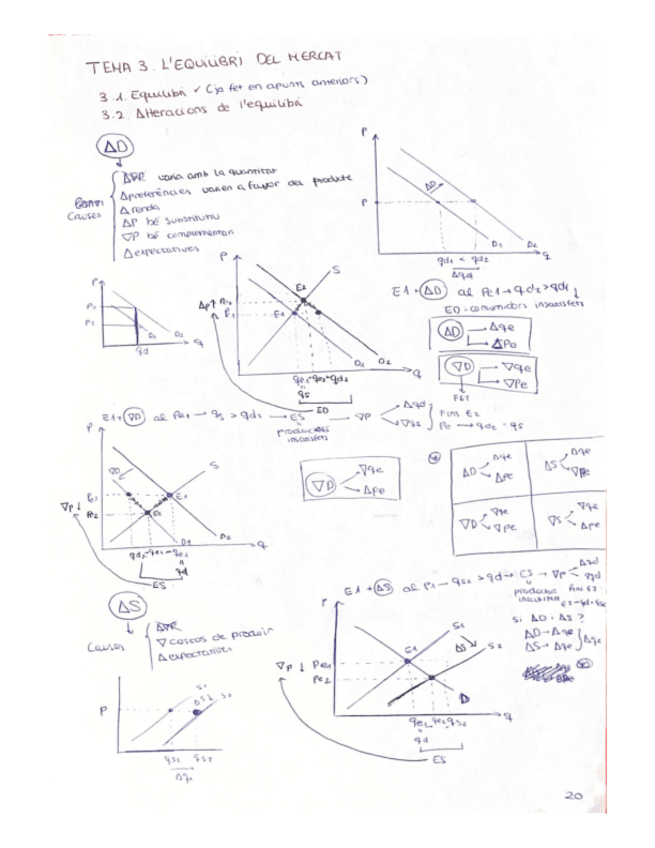 TEMA 3. L'EQUILIBRI DEL MERCAT
3.1. Equilibri ✓ (ja fet en apunts anteriors)
3.2. Alteracions de l'equilibri
ΔD
Causes
varia amb la quantitat
Δpreferències varien a favor del producte
Δ renda
ΔP bé substitutiu
∇P bé complementari
Δ expectatives
P
P
ΔD
D1 D2
qd1 < qd2
q
Δqd
E1 + ΔD al Pe1 → qd2 > qd1
ED - consumidors insatisfets
ΔD → Δqe
→ ΔPe
∇D → ∇qe
→ ∇Pe
FET
P
D1
D2
q
qd
P
S
E2
E1
ΔP↑
D1
D2
q
qe1 - qe2 - qd2
qs
ED
E1 + ∇D al Pe1 → qs > qd2 → ES → ∇P
productors
insatisfets
Δqd
∇qs
Fins E2
Pe → qd2 = qs
P
S
∇D
E1
E2
∇P↓
Pe1
Pe2
D1
D2
q
qd2 - qe2 - qe1
qd
ES
∇D
∇qe
ΔPe
ΔD
Δqe
ΔPe
ΔS
Δqe
∇Pe
∇D
∇qe
∇Pe
∇S
∇qe
ΔPe
ΔS
Causes
∇ costos de produir
Δ expectatives
E1 + ΔS al P1 → qs2 > qd → ES → ∇P
Δqd
∇qd
productors
Fins E2
si ΔD + ΔS ?
ΔD → Δqe
ΔS → Δqe
Δqe
P
S1
ΔS
S2
E1
∇P ↓
Pe1
Pe2
D
q
qd
ES
P
S1
ΔS
S2
qs1 qs2
20